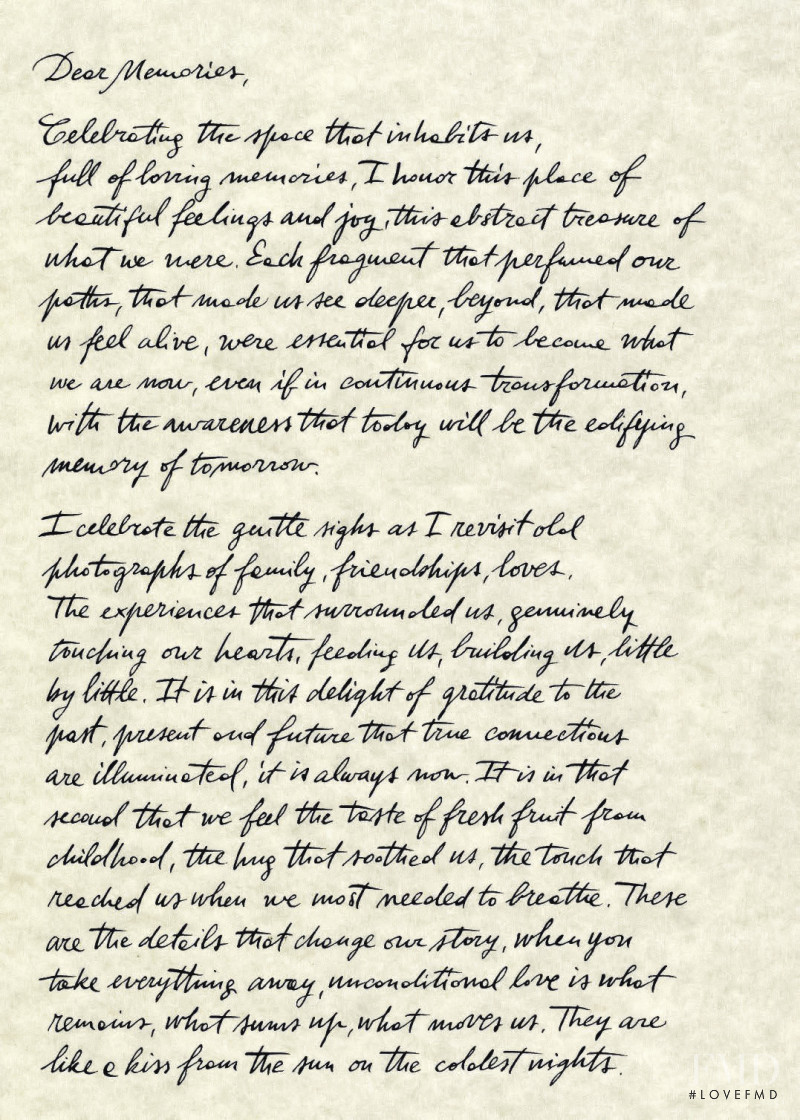 Dear Memories,
Celebrating the space that inhabits us,
full of loving memories, I honor this place of
beautiful feelings and joy, this abstract treasure of
what we were. Each fragment that perfumed our
paths, that made us see deeper, beyond, that made
us feel alive, were essential for us to become what
we are now, even if in continuous transformation,
with the awareness that today will be the edifying
memory of tomorrow.
I celebrate the gentle sighs as I revisit old
photographs of family, friendships, loves.
The experiences that surrounded us, genuinely
touching our hearts, feeding us, building us, little
by little. It is in this delight of gratitude to the
past, present and future that true connections
are illuminated, it is always now. It is in that
second that we feel the taste of fresh fruit from
childhood, the hug that soothed us, the touch that
reached us when we most needed to breathe. These
are the details that change our story, when you
take everything away, unconditional love is what
remains, what sums up, what moves us. They are
like a kiss from the sun on the coldest nights.
FMD
#LOVEFMD